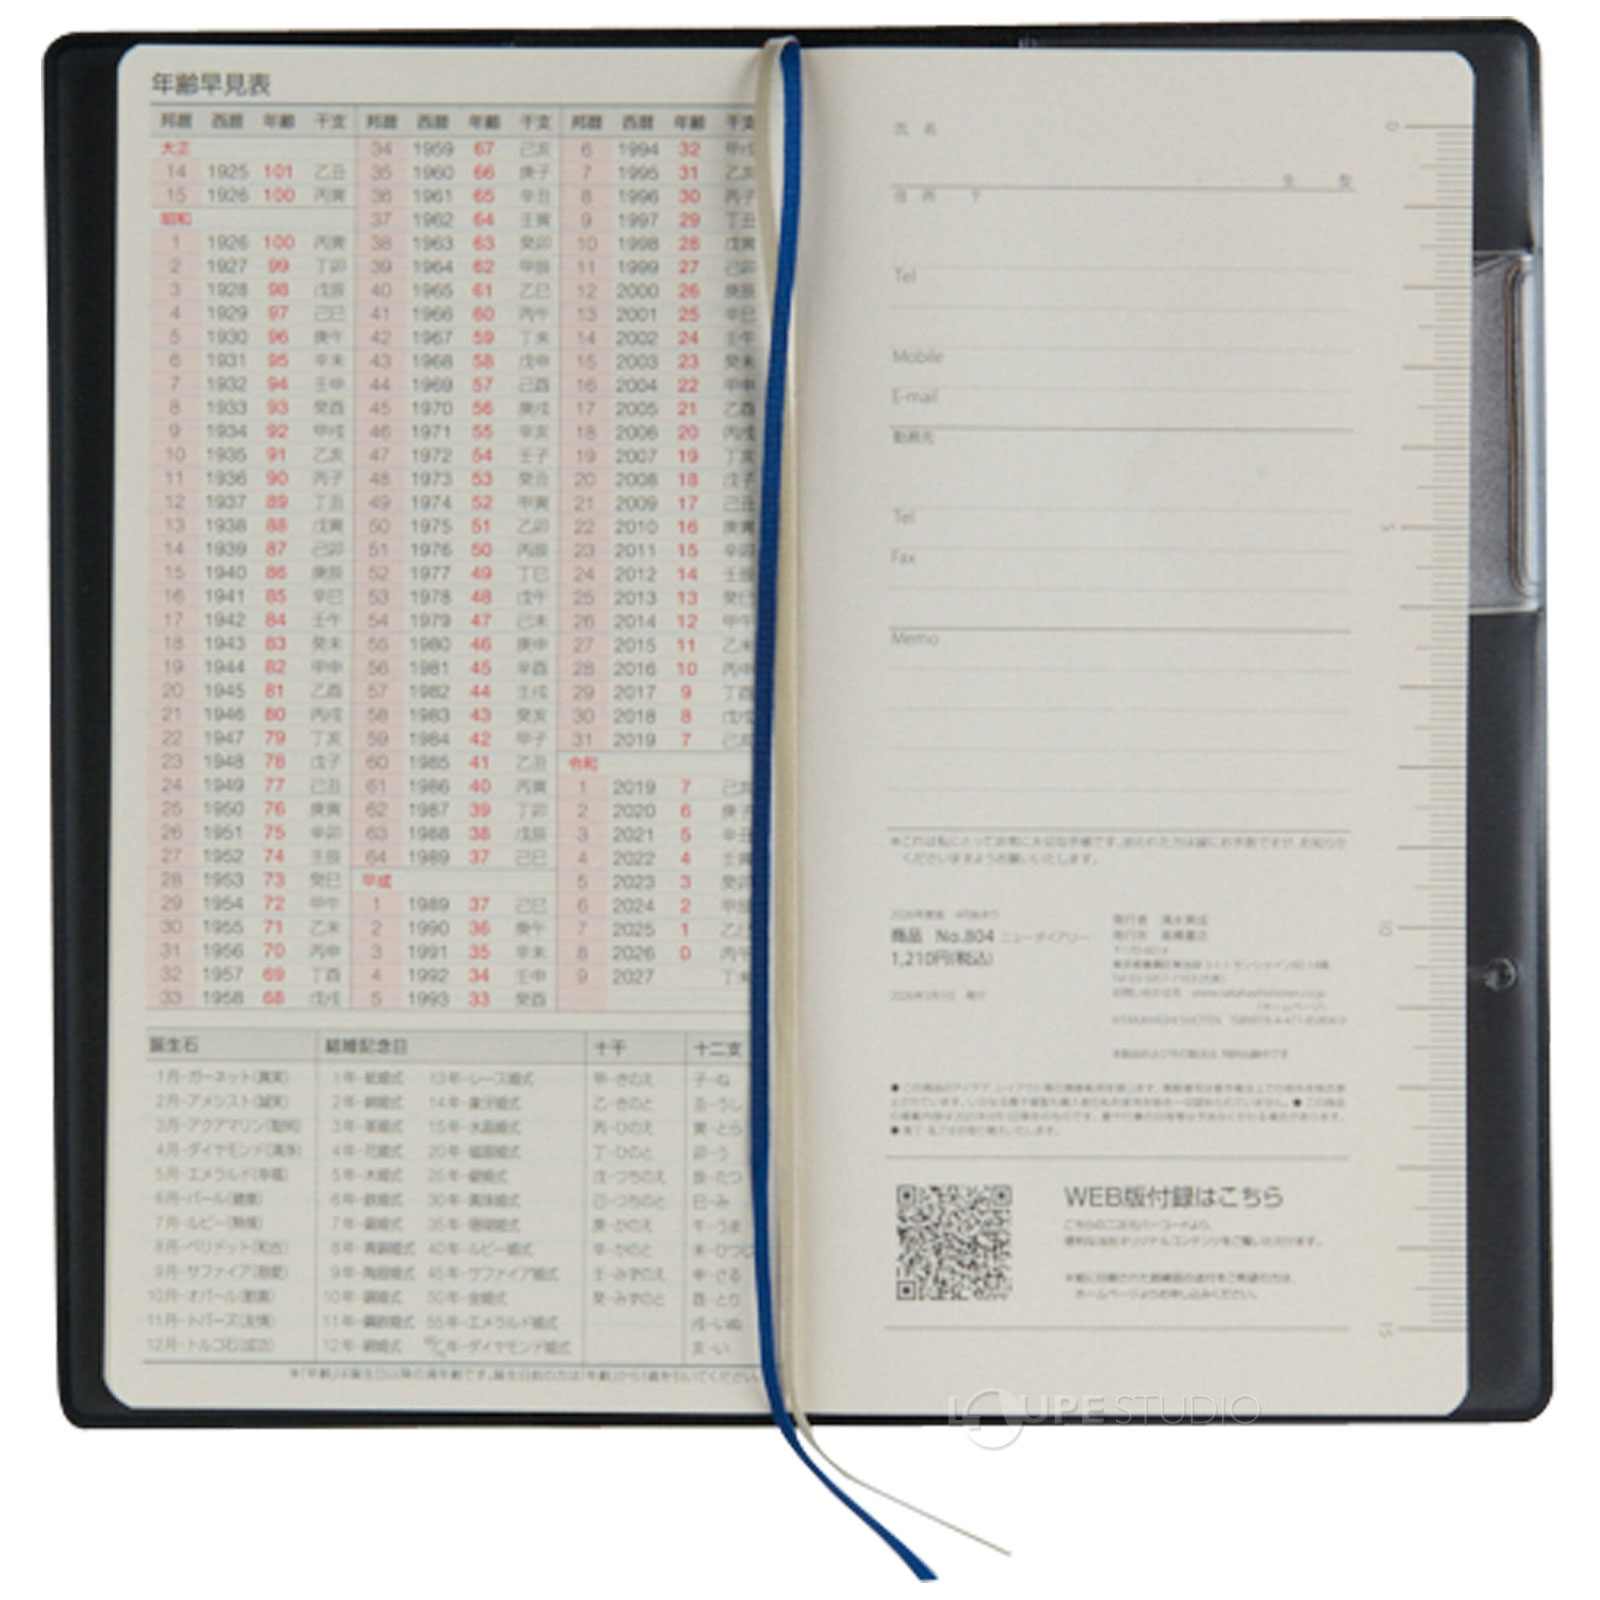 年齢早見表
邦暦 西暦 年齢 干支 邦暦 西暦 年齢 干支 邦暦 西暦 年齢 干支
大正 34 1959 67 己亥 6 1994 32 甲戌
14 1925 101 乙丑 35 1960 66 庚子 7 1995 31 乙亥
15 1926 100 丙寅 36 1961 65 辛丑 8 1996 30 丙子
昭和 37 1962 64 壬寅 9 1997 29 丁丑
1 1926 100 丙寅 38 1963 63 癸卯 10 1998 28 戊寅
2 1927 99 丁卯 39 1964 62 甲辰 11 1999 27 己卯
3 1928 98 戊辰 40 1965 61 乙巳 12 2000 26 庚辰
4 1929 97 己巳 41 1966 60 丙午 13 2001 25 辛巳
5 1930 96 庚午 42 1967 59 丁未 14 2002 24 壬午
6 1931 95 辛未 43 1968 58 戊申 15 2003 23 癸未
7 1932 94 壬申 44 1969 57 己酉 16 2004 22 甲申
8 1933 93 癸酉 45 1970 56 庚戌 17 2005 21 乙酉
9 1934 92 甲戌 46 1971 55 辛亥 18 2006 20 丙戌
10 1935 91 乙亥 47 1972 54 壬子 19 2007 19 丁亥
11 1936 90 丙子 48 1973 53 癸丑 20 2008 18 戊子
12 1937 89 丁丑 49 1974 52 甲寅 21 2009 17 己丑
13 1938 88 戊寅 50 1975 51 乙卯 22 2010 16 庚寅
14 1939 87 己卯 51 1976 50 丙辰 23 2011 15 辛卯
15 1940 86 庚辰 52 1977 49 丁巳 24 2012 14 壬辰
16 1941 85 辛巳 53 1978 48 戊午 25 2013 13 癸巳
17 1942 84 壬午 54 1979 47 己未 26 2014 12 甲午
18 1943 83 癸未 55 1980 46 庚申 27 2015 11 乙未
19 1944 82 甲申 56 1981 45 辛酉 28 2016 10 丙申
20 1945 81 乙酉 57 1982 44 壬戌 29 2017 9 丁酉
21 1946 80 丙戌 58 1983 43 癸亥 30 2018 8 戊戌
22 1947 79 丁亥 59 1984 42 甲子 31 2019 7 己亥
23 1948 78 戊子 60 1985 41 乙丑 令和
24 1949 77 己丑 61 1986 40 丙寅 1 2019 7 己亥
25 1950 76 庚寅 62 1987 39 丁卯 2 2020 6 庚子
26 1951 75 辛卯 63 1988 38 戊辰 3 2021 5 辛丑
27 1952 74 壬辰 64 1989 37 己巳 4 2022 4 壬寅
28 1953 73 癸巳 平成 5 2023 3 癸卯
29 1954 72 甲午 1 1989 37 己巳 6 2024 2 甲辰
30 1955 71 乙未 2 1990 36 庚午 7 2025 1 乙巳
31 1956 70 丙申 3 1991 35 辛未 8 2026 0 丙午
32 1957 69 丁酉 4 1992 34 壬申 9 2027 丁未
33 1958 68 戊戌 5 1993 33 癸酉
誕生石 結婚記念日 十干 十二支
1月-ガーネット(真実) 1年-紙婚式 13年-レース婚式 甲-きのえ 子-ね
2月-アメシスト(誠実) 2年-綿婚式 14年-象牙婚式 乙-きのと 丑-うし
3月-アクアマリン(聡明) 3年-革婚式 15年-水晶婚式 丙-ひのえ 寅-とら
4月-ダイヤモンド(清浄) 4年-花婚式 20年-磁器婚式 丁-ひのと 卯-う
5月-エメラルド(幸福) 5年-木婚式 25年-銀婚式 戊-つちのえ 辰-たつ
6月-パール(健康) 6年-鉄婚式 30年-真珠婚式 己-つちのと 巳-み
7月-ルビー(熱情) 7年-銅婚式 35年-珊瑚婚式 庚-かのえ 午-うま
8月-ペリドット(和合) 8年-青銅婚式 40年-ルビー婚式 辛-かのと 未-ひつじ
9月-サファイア(慈愛) 9年-陶器婚式 45年-サファイア婚式 壬-みずのえ 申-さる
10月-オパール(歓喜) 10年-錫婚式 50年-金婚式 癸-みずのと 酉-とり
11月-トパーズ(友情) 11年-鋼鉄婚式 55年-エメラルド婚式 戌-いぬ
12月-トルコ石(成功) 12年-絹婚式 年-ダイヤモンド婚式 亥-い
※「年齢」は誕生日以降の満年齢です。誕生日前の方は「年齢」から1歳を引いてください
氏 名
住 所 〒
Tel
Mobile
E-mail
勤務先
Tel
Fax
Memo
※これは私にとって非常に大切な手帳です。拾われた方は誠にお手数ですが、お知らせ
くださいますようお願いいたします。
2026年度版 4月始まり
商品 No.804 ニューダイアリー
1,210円(税込)
発行者 清水美成
発行所 高橋書店
WEB版付録はこちら
こちらの二次元バーコードより、
便利な当社オリジナルコンテンツをご覧いただけます。
ホームページよりお申し込みください。
0
5
10
15
LOUPE STUDIO